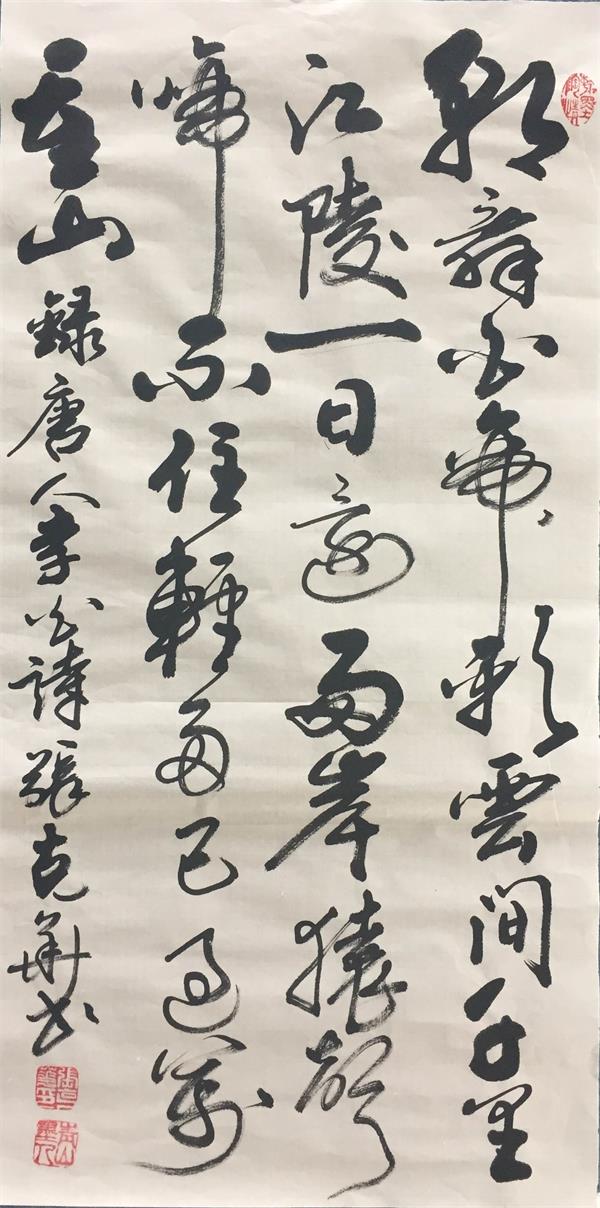 朝辭白帝彩雲間千里
江陵一日還兩岸猿聲
啼不住輕舟已過萬
重山 錄唐人李白詩張克華書